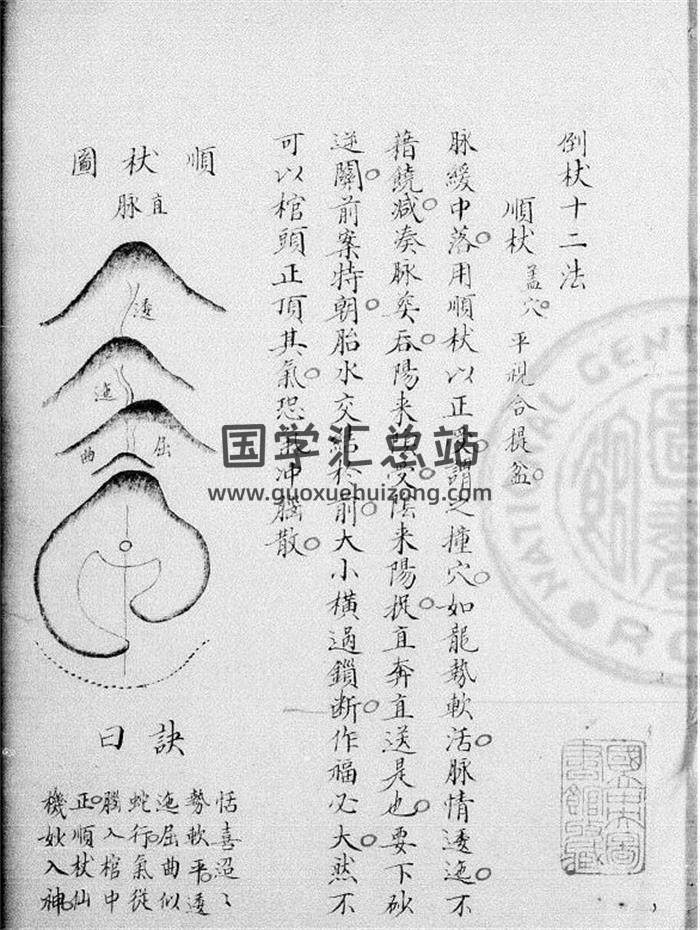 倒杖十二法
順杖 蓋穴 平視合提盆
脉緩中落用順杖以正受謂之撞穴如龍勢軟活脉情逶迤不
藉饒減奏脉矣吞陽来陰受陰来陽捉直奔直送是也要下砂
逆關前案特朝胎水交結於前大小橫過鎖断作福必大然不
可以棺頭正頂其氣恐氣冲腦散
順杖圖
直脉
逶
迤
屈
曲
訣曰
恬喜迢〻
勢軟平逶
迤屈曲似
蛇行氣從
腦入棺中
正順杖仙
機妙入神
国学汇总站
www.guoxuehuizong.com
NATIONAL CENT
國立中央圖
書館收藏